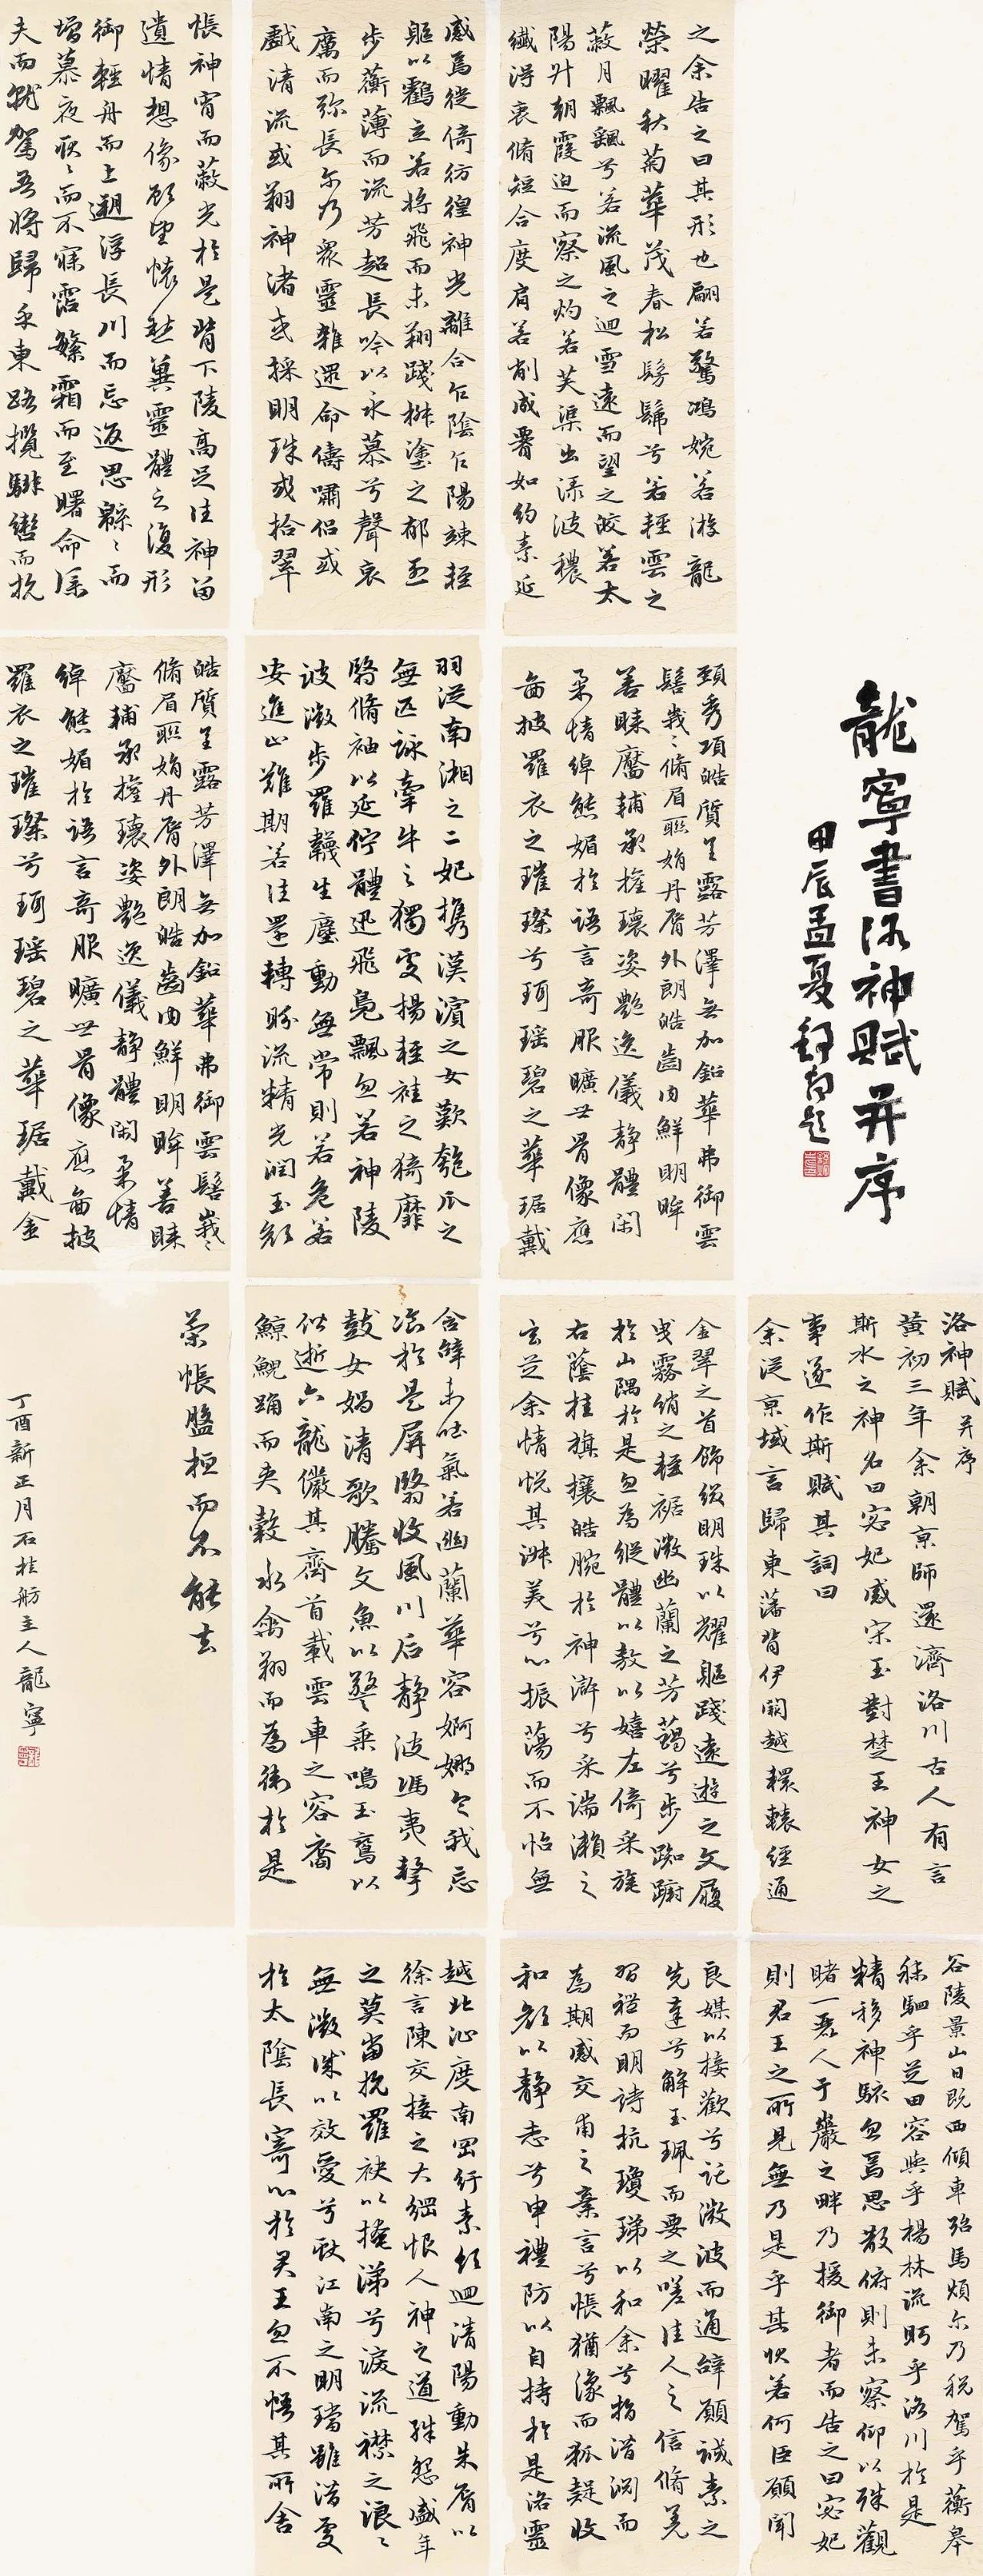 龍寧書洛神賦并序
甲辰孟夏
洛神賦并序
黃初三年余朝京師還濟洛川古人有言
斯水之神名曰宓妃感宋玉對楚王神女之
事遂作斯賦其詞曰
余從京域言歸東藩背伊闕越轘轅經通
谷陵景山日既西傾車殆馬煩尔乃税駕乎蘅皋
秣駟乎芝田容與乎楊林流眄乎洛川於是
精移神駭忽焉思散俯則未察仰以殊觀
睹一麗人于巖之畔乃援御者而告之曰宓妃
則君王之所見無乃是乎其狀若何臣願聞
之余告之曰其形也翩若驚鴻婉若游龍
榮曜秋菊華茂春松髣髴兮若輕雲之
蔽月飄颻兮若流風之迴雪遠而望之皎若太
陽升朝霞迫而察之灼若芙渠出渌波穠
纖得衷脩短合度肩若削成如約素延
頸秀項皓質呈露芳澤無加鉛華弗御雲
髻峩〻脩眉聯娟丹脣外朗皓齒内鮮明眸
善睞靨輔承擢瓌姿艷逸儀静體閑
柔情綽態媚於語言奇服曠世骨像應
啚披羅衣之璀璨兮珥瑶碧之華琚戴
金翠之首飾綴明珠以耀軀踐遠遊之文履
曳霧綃之輕裾微幽蘭之芳藹兮步踟躕
於山隅於是忽為縱體以敖以嬉左倚采旄
右蔭桂旗攘皓腕於神滸兮采湍瀨之
玄芝余情悦其淑美兮心振蕩而不怡無
良媒以接歡兮託微波而通辭願誠素之
先達兮解玉珮而要之嗟佳人之信脩羌
習禮而明詩抗瓊珶以和余兮指潛淵而
為期感交甫之棄言兮悵猶豫而狐疑收
和顏以静志兮申禮防以自持於是洛靈
感焉徙倚彷徨神光離合乍陰乍陽竦輕
軀以鸖立若將飛而未翔踐椒塗之郁
步蘅薄而流芳超長吟以永慕兮聲哀
厲而弥長尔乃衆靈雜遝命儔嘯侣或
戲清流或翔神渚或採明珠或拾翠
羽從南湘之二妃携漢濱之女歎匏爪之
無匹詠牽牛之獨處揚輕袿之猗靡
翳脩袖以延佇體迅飛鳧飄忽若神陵
波微步羅韈生塵動無常則若危若
安進止難期若往若還轉眄流精光潤玉顏
含辭未吐氣若幽蘭華容婀娜令我忘
飡於是屏翳收風川后静波馮夷擊
鼓女媧清歌騰文魚以警乘鳴玉鸞以
偕逝六龍儼其齊首載雲車之容裔
鯨鯢踊而夾轂水禽翔而為衛於是
越北沚度南岡紆素領迴清陽動朱脣以
徐言陳交接之大綱恨人神之道殊怨盛年
之莫當抗羅袂以掩涕兮淚流襟之浪〻
無微誠以效愛兮獻江南之明璫雖潛處
於太陰長寄心於君王忽不悟其所舍
悵神宵而蔽光於是背下陵高足往神留
遺情想像顧望懷愁冀靈體之復形
御輕舟而上遡浮長川而忘返思緜〻而
增慕夜耿〻而不寐霑繁霜而至曙命僕
夫而就駕吾將歸乎東路攬騑轡而抗
皓質呈露芳澤無加鉛華弗御雲髻峩〻
脩眉聯娟丹脣外朗皓齒内鮮明眸善睞
靨輔承擢瓌姿艷逸儀静體閑柔情
綽態媚於語言奇服曠世骨像應啚披
羅衣之璀璨兮珥瑶碧之華琚戴金
策悵盤桓而不能去
丁酉新正月石桂舫主人龍寧